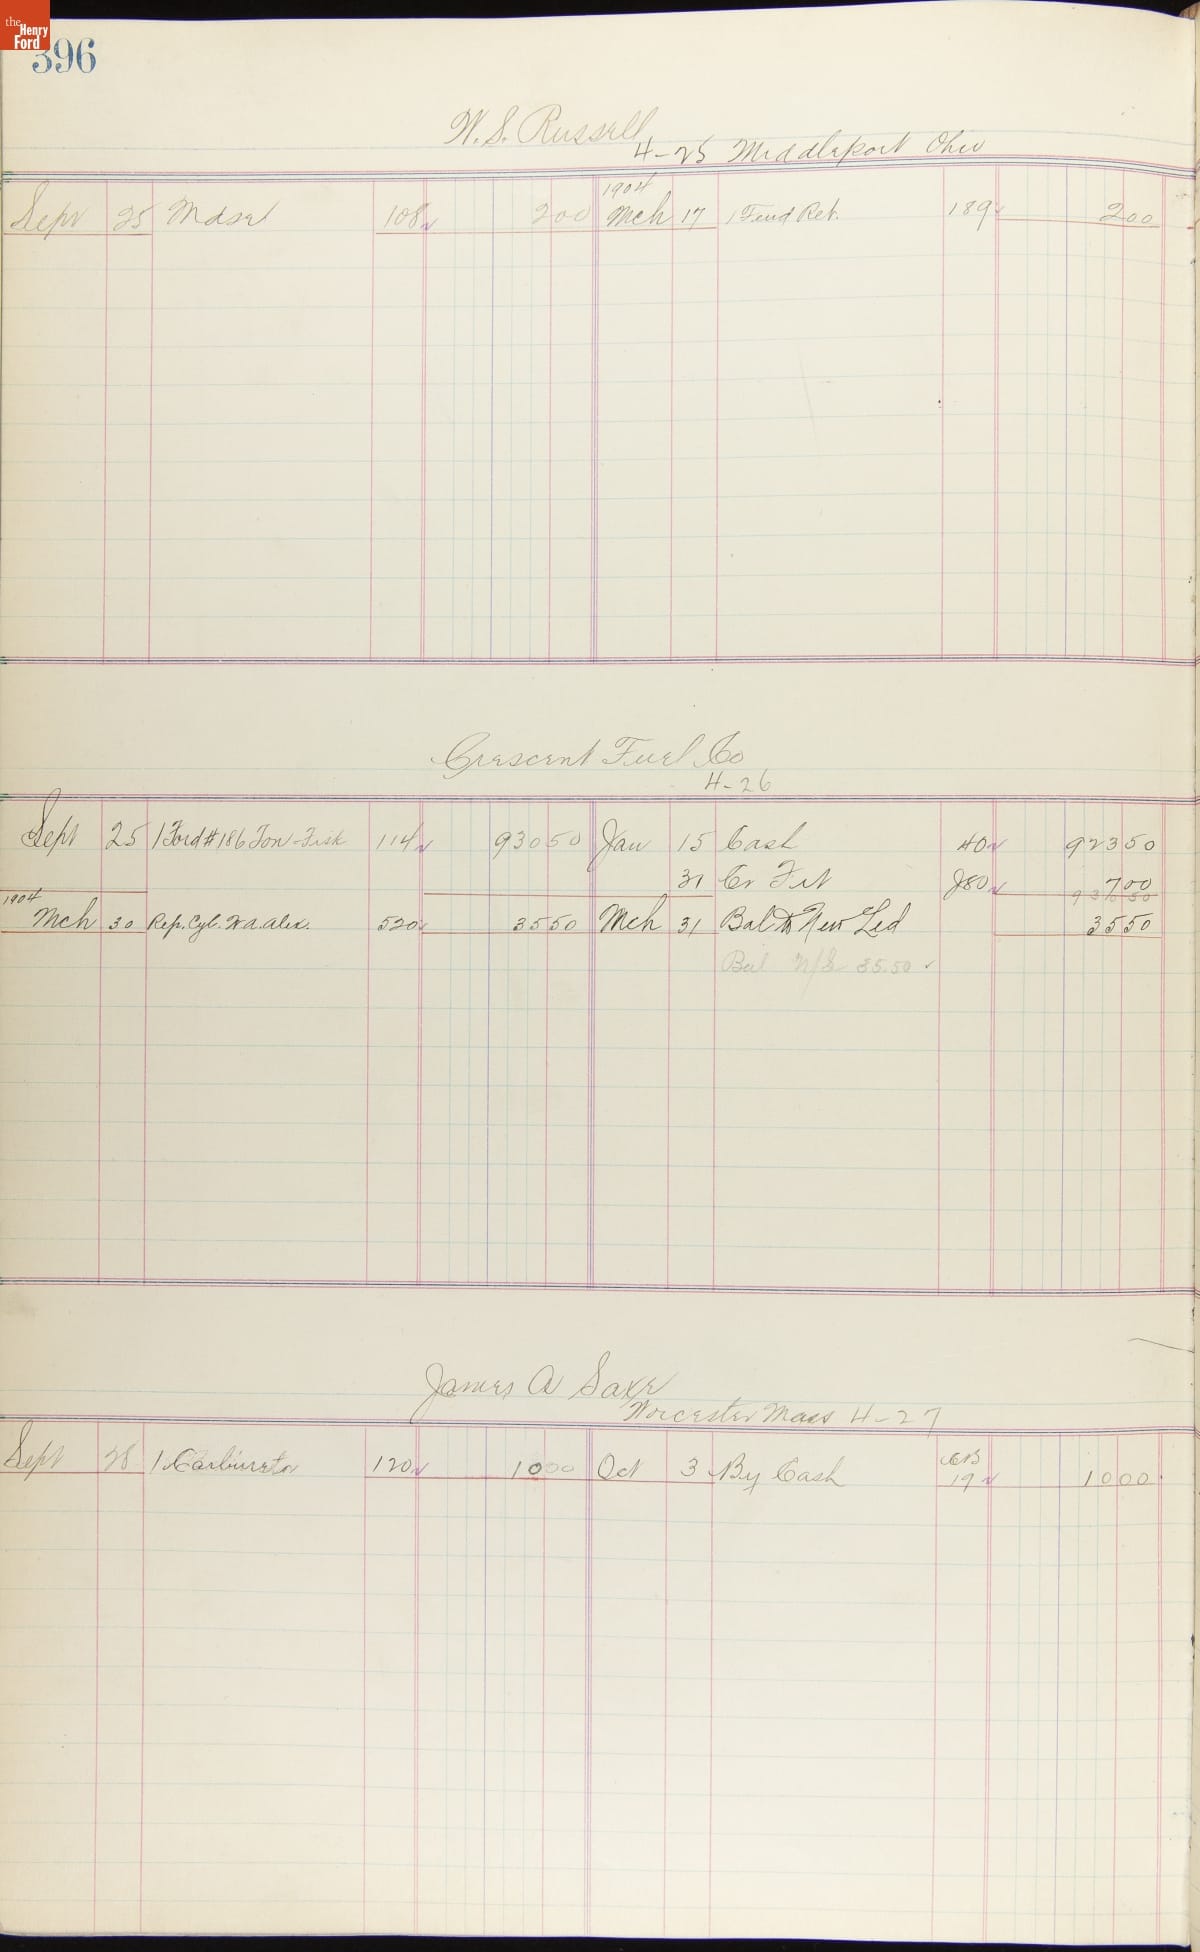 the Henry Ford
396
W. S. Russell
4-25 Middleport Ohio
1904
Sept 25 Mdse 108 2 00 Mch 17 1 Fend Ret. 189 2 00
Crescent Fuel Co
4-26
Sept 25 1 Ford #186 Ton-Fisk 114 930 50 Jan 15 Cash 40 923 50
31 Cr Frt J80 7 00
930 50
1904
Mch 30 Rep. Cyl. 520 35 50 Mch 31 Bal to New Led 35 50
Bal N/L 35.50
James A Saxe
Worcester Mass 4-27
Sept 28 1 Carburetor 120 10 00 Oct 3 By Cash CB 19 10 00